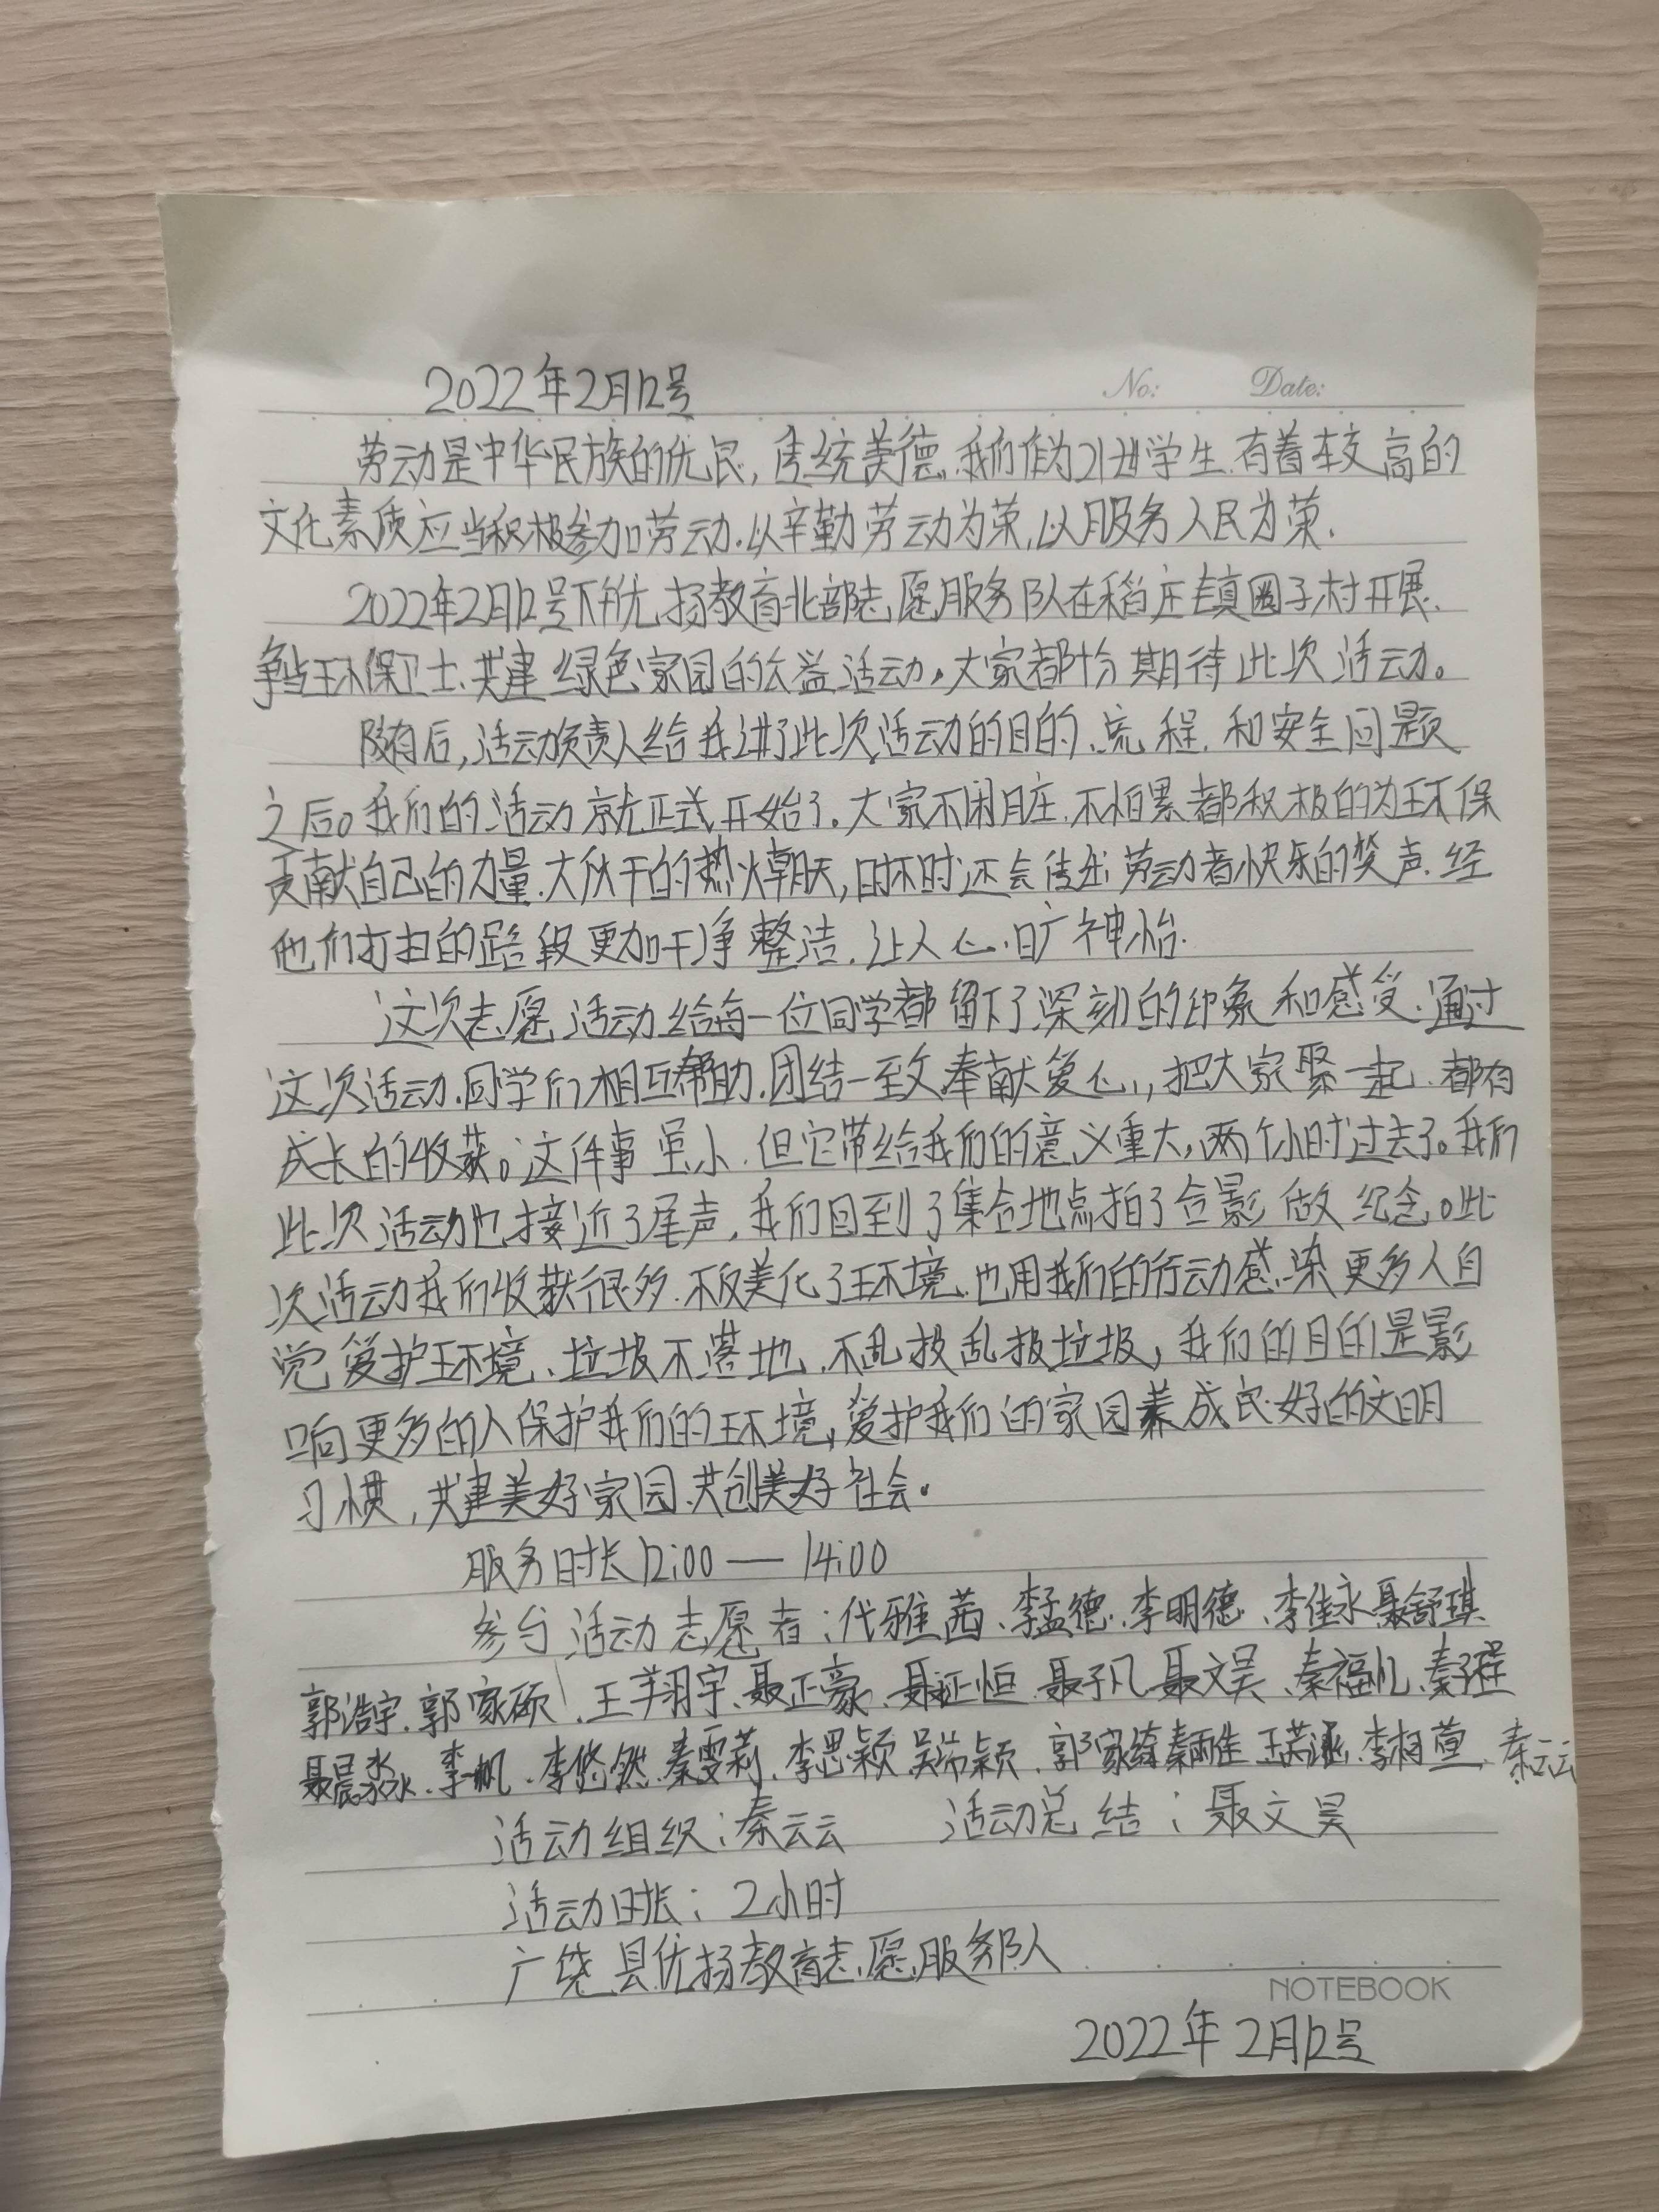 2022年2月12号
No: Date:
劳动是中华民族的优良,传统美德,我们作为21世学生.有着较高的
文化素质应当积极参加劳动.以辛勤劳动为荣,以服务人民为荣.
2022年2月12号下午优扬教育北部志愿服务队在稻庄镇圈子村开展.
争当环保卫士、共建绿色家园的公益活动。大家都十分期待此次活动。
随后,活动负责人给我讲了此次活动的目的、流程.和安全问题
之后。我们的活动就正式开始了。大家不怕脏.不怕累都积极的为环保
贡献自己的力量.大伙干的热火朝天,时不时还会传出劳动者快乐的笑声.经
他们打扫的路段更加干净整洁.让人心旷神怡.
这次志愿活动给每一位同学都留下了深刻的印象和感受.通过
这次活动.同学们相互帮助.团结一致奉献爱心,把大家聚一起.都有
成长的收获。这件事虽小.但它带给我们的意义重大,两个小时过去了。我们
此次活动也接近了尾声,我们回到了集合地点拍了合影做纪念。此
次活动我们收获很多.不仅美化了环境.也用我们的行动感染更多人自
觉爱护环境、垃圾不落地.不乱投乱扔垃圾,我们的目的是影
响更多的人保护我们的环境,爱护我们的家园养成良好的文明
习惯,共建美好家园.共创美好社会。
服务时长12:00—14:00
参与活动志愿者:代雅茜、李孟德.李明德、李佳永聂舒琪
郭浩宇.郭家硕、王翔宇、聂正豪、聂正恒.聂子凡聂文昊、秦福忆、秦子程
聂晨淼.李一帆.李悠然.秦雯莉.李思颖吴尚颖、郭家绮秦雨佳王若涵.李相萱.秦云云
活动组织:秦云云 活动总结:聂文昊
活动时长:2小时
广饶县优扬教育志愿服务队
NOTEBOOK
2022年2月12号